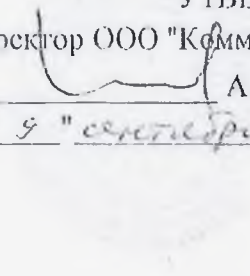 ректор ООО "Комм
А
9 " сентября